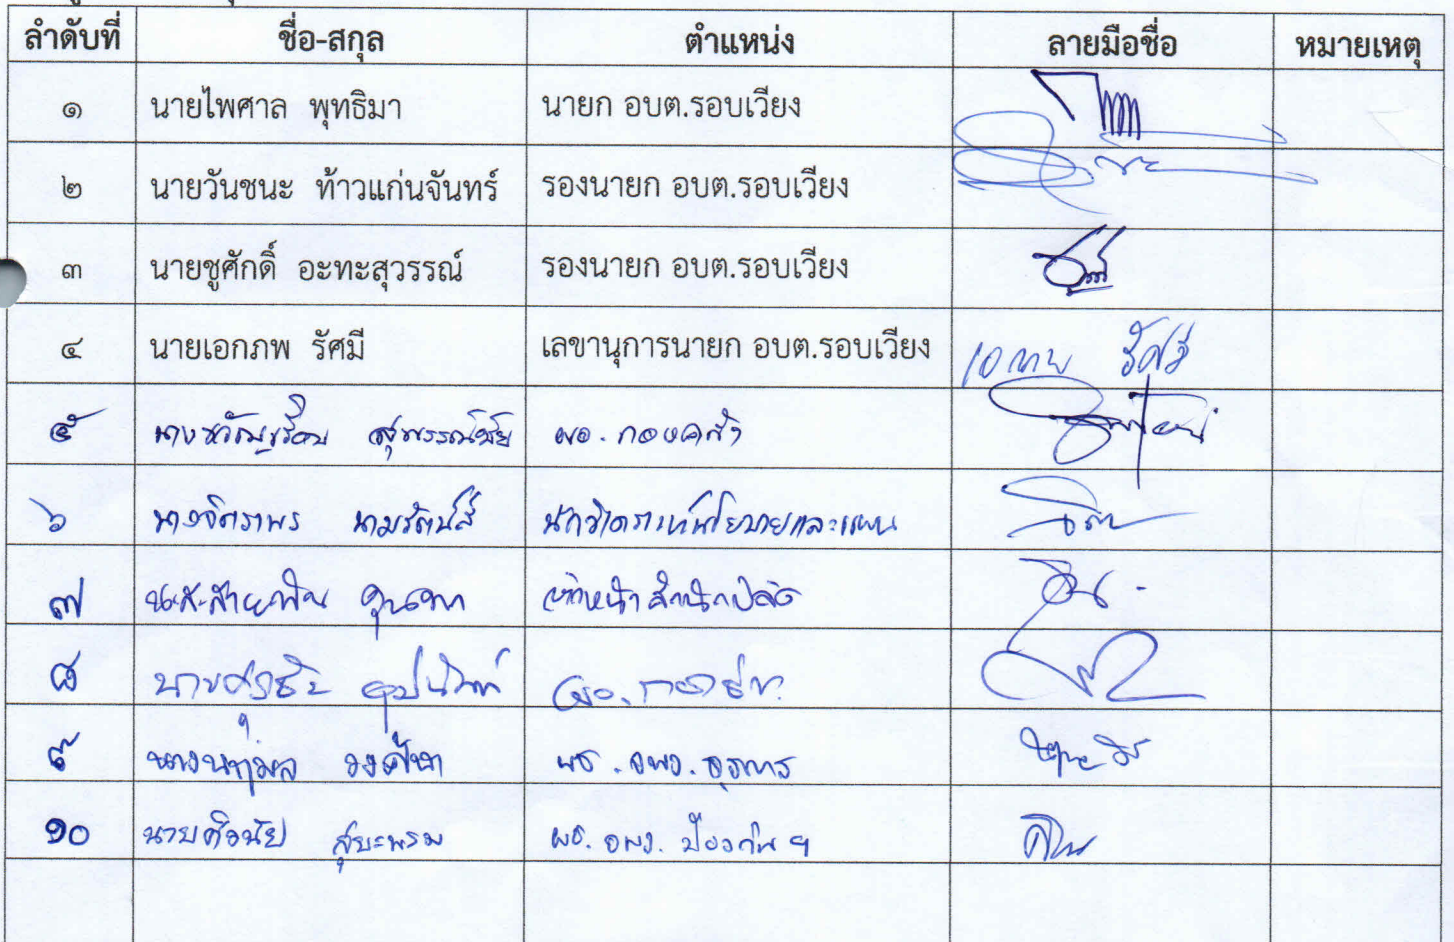 ลำดับที่ ชื่อ-สกุล ตำแหน่ง ลายมือชื่อ หมายเหตุ
๑ นายไพศาล พุทธิมา นายก อบต.รอบเวียง
๒ นายวันชนะ ท้าวแก่นจันทร์ รองนายก อบต.รอบเวียง
๓ นายชูศักดิ์ อะทะสุวรรณ์ รองนายก อบต.รอบเวียง
๔ นายเอกภพ รัศมี เลขานุการนายก อบต.รอบเวียง เอกภพ รัศมี
๕ นางขวัญเรือน สุพรรณ์ชัย ผอ. กองคลัง
๖ นางจิตราพร นามรัตน์สี นักวิเคราะห์นโยบายและแผน
๗ น.ส.สายพิน หัวหน้าสำนักปลัด
๘ ผอ. กองช่าง
๙ นางนฤมล วงค์ษา ผช. จพง. ธุรการ
๑๐ นายศิวนัย สุยะพรม ผช. จพง. ป้องกัน ฯ